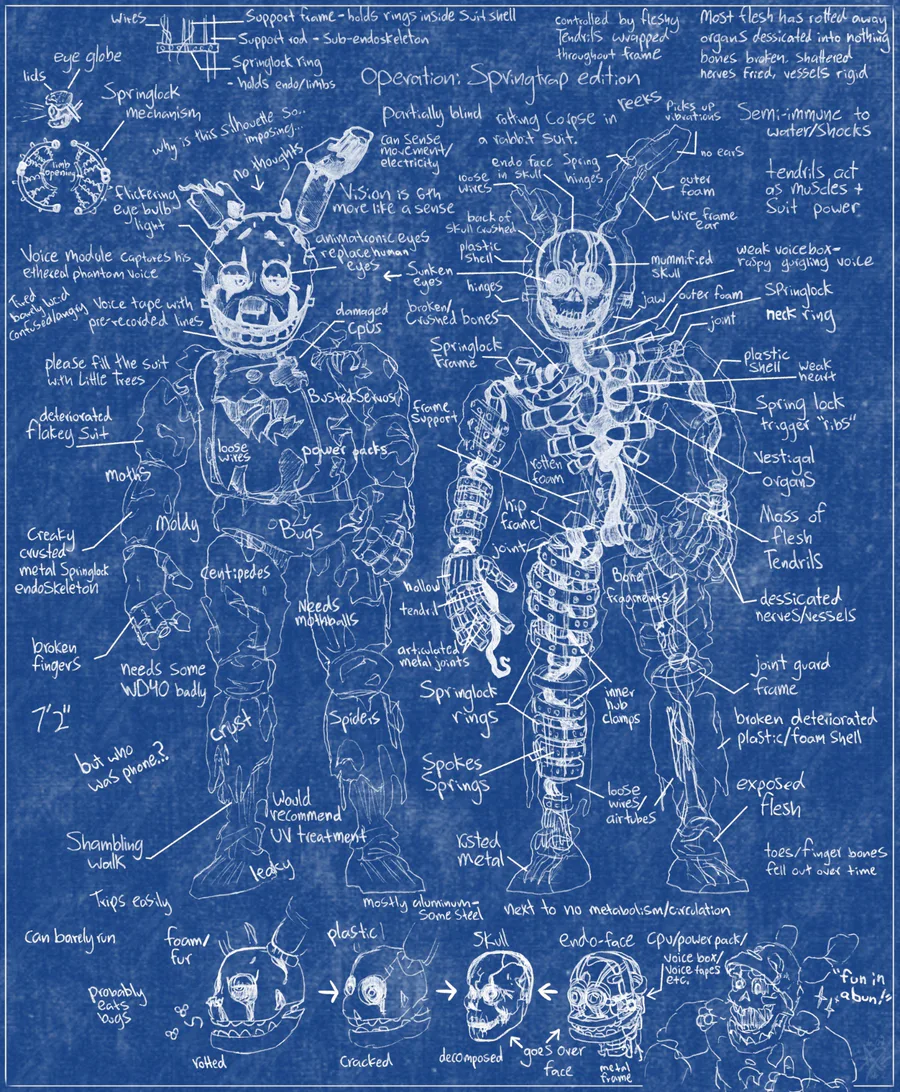 wires
Support frame - holds rings inside Suit shell
Support rod - Sub-endoskeleton
Springlock ring
- holds endo/limbs
controlled by fleshy
Tendrils wrapped
throughout frame
Most flesh has rotted away
organs dessicated into nothing
bones broken, shattered
nerves fried, vessels rigid
Operation: Springtrap edition
eye globe
lids
Springlock
mechanism
limb
opening
why is this silhouette so...
imposing...
no thoughts
Partially blind
can sense
movement/
electricity
rotting Corpse in
a rabbit suit.
reeks
Picks up
vibrations
no ears
Semi-immune to
water/shocks
tendrils act
as muscles +
Suit power
Flickering
eye bulb
light
Vision is 6th
more like a sense
loose
wires
endo face
in skull
Spring
hinges
outer
foam
wire frame
ear
back of
skull crushed
plastic
shell
Voice module captures his
ethereal phantom voice
animatronic eyes
replace human
eyes
Sunken
eyes
hinges
mummified
skull
weak voicebox-
raspy gurgling voice
Tired
barely lucid
confused/angry
Voice tape with
pre-recorded lines
damaged
CPUs
broken/
Crushed bones
jaw
outer foam
joint
Springlock
neck ring
please fill the suit
with Little Trees
Springlock
Frame
plastic
shell
weak
heart
Busted Servos
deteriorated
flakey Suit
frame
Support
Spring lock
trigger "ribs"
loose
wires
power packs
moths
rotten
foam
Vestigal
organs
Moldy
Bugs
hip
frame
Mass of
flesh
Tendrils
Creaky
crusted
metal Springlock
endoskeleton
joint
Centipedes
hollow
Bone
fragments
tendril
Needs
mothballs
dessicated
nerves/vessels
broken
fingers
articulated
metal joints
needs some
WD40 badly
Springlock
rings
inner
hub
clamps
joint guard
frame
7'2"
crust
Spiders
broken deteriorated
plastic/foam shell
but who
was phone..?
Spokes
Springs
loose
wires/
airtubes
exposed
flesh
Would
recommend
UV treatment
Shambling
walk
leaky
rusted
metal
toes/finger bones
fell out over time
Trips easily
mostly aluminum-
Some steel
next to no metabolism/circulation
Can barely run
foam/
fur
plastic
Skull
endo-face
CPU/power pack/
voice box/
Voice tapes
etc.
probably
eats
bugs
"fun in
abun!"
rotted
Cracked
decomposed
goes over
face
metal
frame